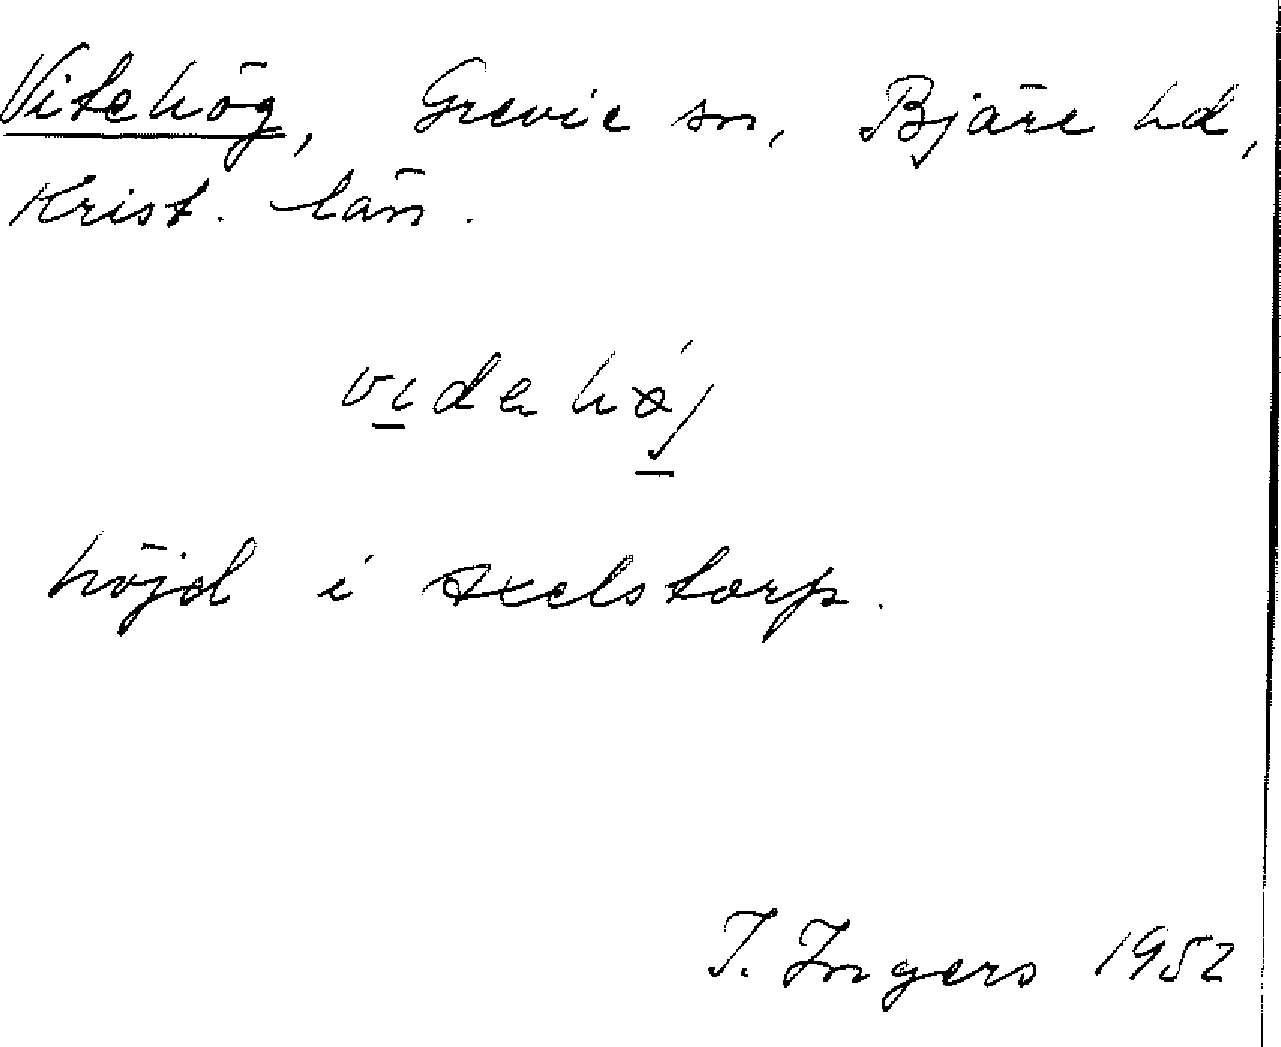 Vitehög, Grevie sn, Bjäre hd,
Krist. län.
vidahöj
höjd i Axelstorp.
I. Ingers 1952